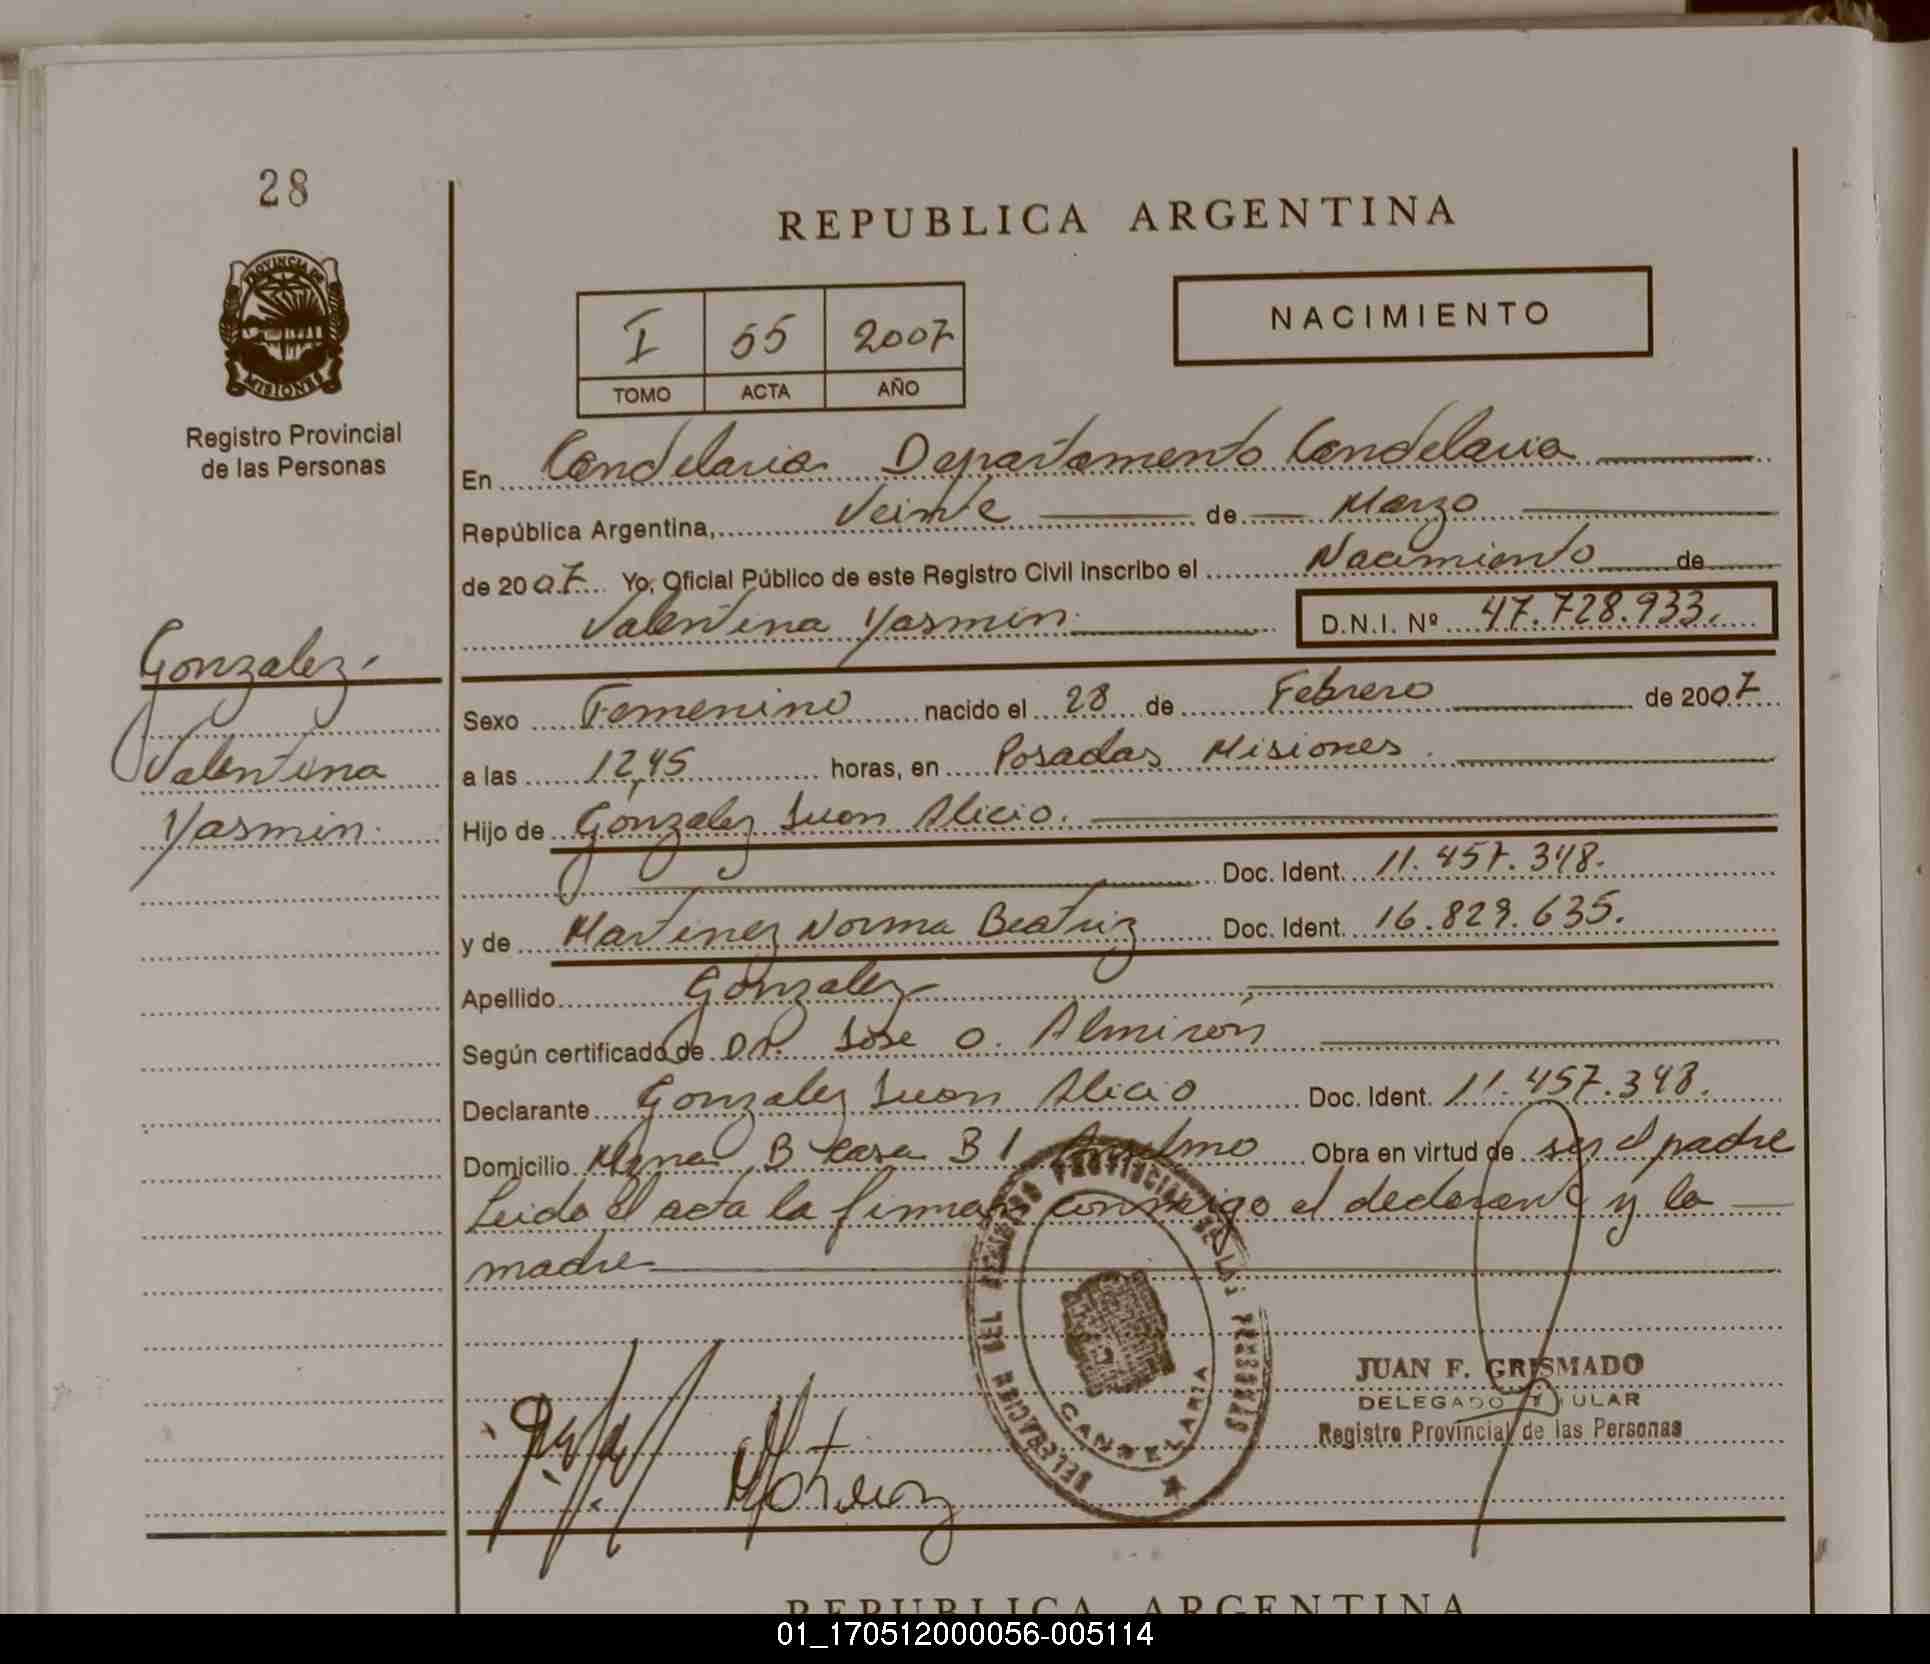 28
PROVINCIA DE
MISIONES
Registro Provincial
de las Personas
REPUBLICA ARGENTINA
I 55 2007
TOMO ACTA AÑO
NACIMIENTO
En Candelaria Departamento Candelaria
República Argentina, Veinte de Marzo
de 2007 Yo, Oficial Público de este Registro Civil inscribo el Nacimiento de
Valentina Yasmin. D.N.I. Nº 47.728.933.
Gonzalez
Valentina
Yasmin.
Sexo Femenino nacido el 28 de Febrero de 2007
a las 12,45 horas, en Posadas Misiones.
Hijo de Gonzalez Juan Alicio.
Doc. Ident. 11.457.348.
y de Martinez Norma Beatriz Doc. Ident. 16.829.635.
Apellido Gonzalez
Según certificado de DR. Jose O. Almirón
Declarante Gonzalez Juan Alicio Doc. Ident. 11.457.348.
Domicilio B casa B I Obra en virtud de ser el padre
Leida el acta la firman conmigo el declarante y la
madre
DELEGACION DEL REGISTRO PROVINCIAL DE LAS PERSONAS
CANDELARIA
JUAN F. GRISMADO
DELEGADO TITULAR
Registro Provincial de las Personas
REPUBLICA ARGENTINA
01_170512000056-005114